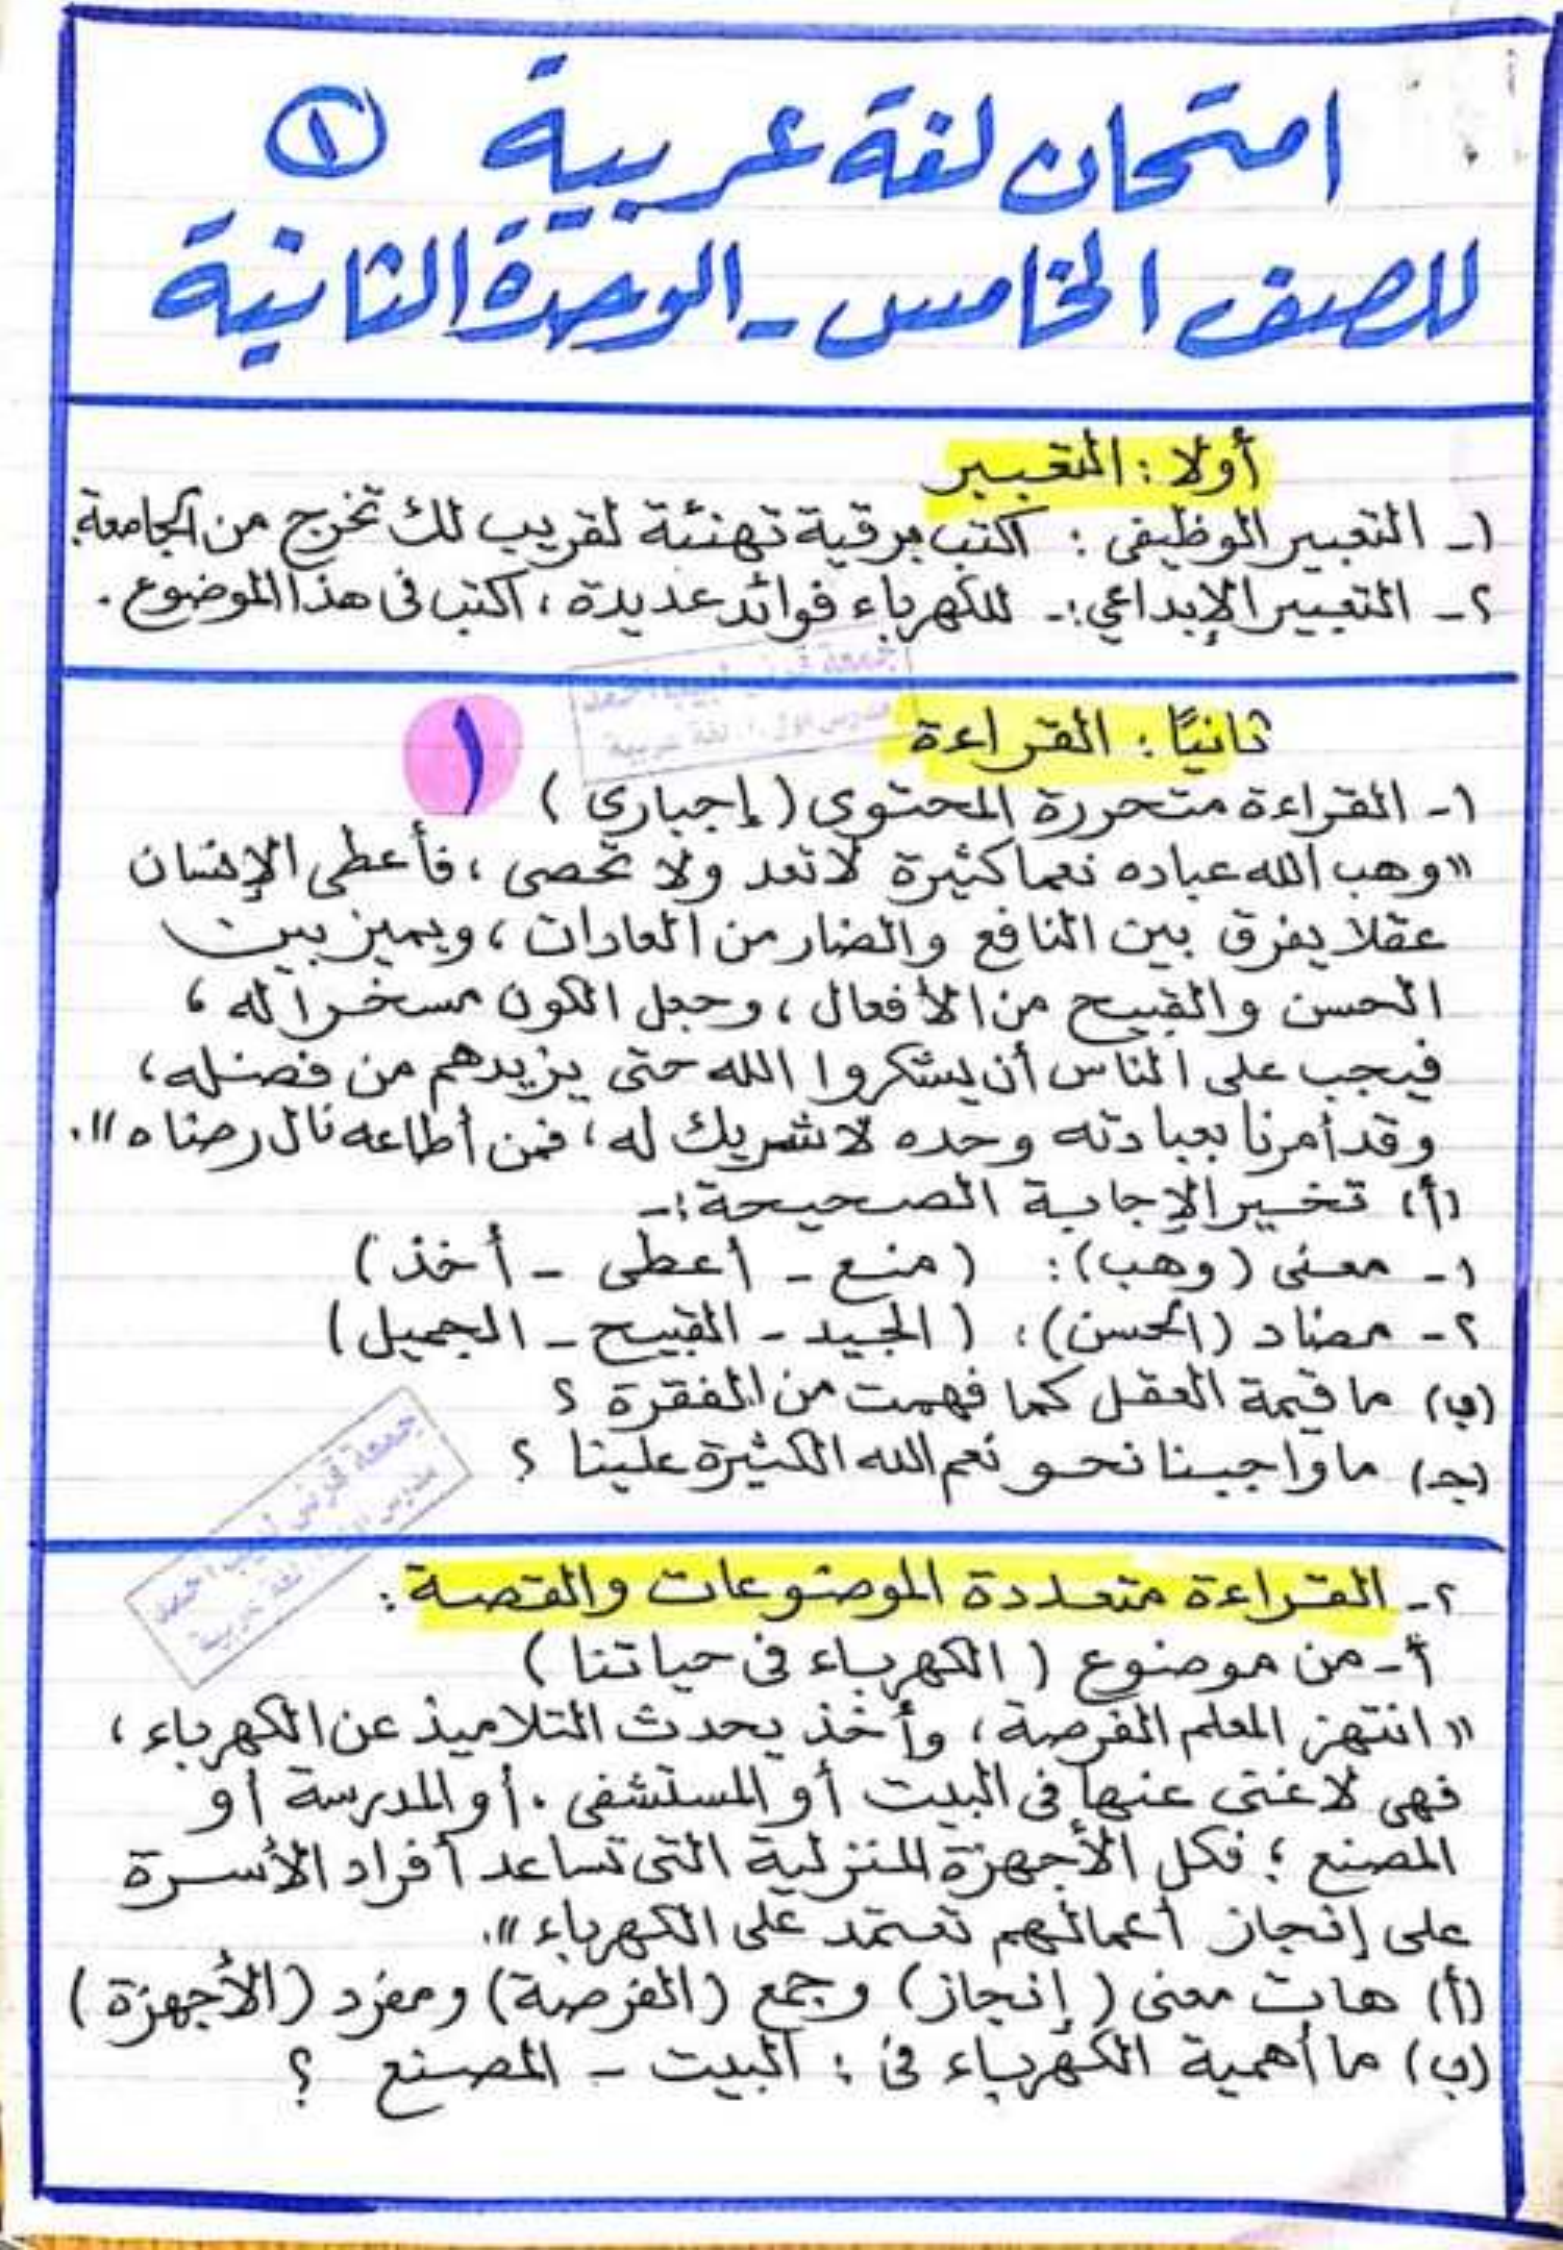 امتحان لغة عربية ١
للصف الخامس - الوحدة الثانية
أولا : التعبير
١- التعبير الوظيفى : اكتب برقية تهنئة لقريب لك تخرج من الجامعة.
٢- التعبير الإبداعي :- للكهرباء فوائد عديدة ، اكتب فى هذا الموضوع .
ثانيًا : القراءة
١
١- القراءة متحررة المحتوى ( إجبارى )
"وهب الله عباده نعما كثيرة لا تعد ولا تحصى ، فأعطى الإنسان
عقلا يفرق بين النافع والضار من العادات ، ويميز بين
الحسن والقبيح من الأفعال ، وجعل الكون مسخرا له ،
فيجب على الناس أن يشكروا الله حتى يزيدهم من فضله ،
وقد أمرنا بعبادته وحده لا شريك له ، فمن أطاعه نال رضاه ".
(أ) تخير الإجابة الصحيحة :-
١- معنى (وهب) : ( منع - أعطى - أخذ )
٢- مضاد (الحسن) : ( الجيد - القبيح - الجميل )
(ب) ما قيمة العقل كما فهمت من الفقرة ؟
(جـ) ما واجبنا نحو نعم الله الكثيرة علينا ؟
٢- القراءة متعددة الموضوعات والقصة :
أ- من موضوع ( الكهرباء فى حياتنا )
" انتهز المعلم الفرصة ، وأخذ يحدث التلاميذ عن الكهرباء ،
فهى لا غنى عنها فى البيت أو المستشفى . أو المدرسة أو
المصنع ؛ فكل الأجهزة المنزلية التى تساعد أفراد الأسرة
على إنجاز أعمالهم تعتمد على الكهرباء ".
(أ) هات معنى ( إنجاز ) وجمع (الفرصة) ومفرد ( الأجهزة )
(ب) ما أهمية الكهرباء فى : البيت - المصنع ؟